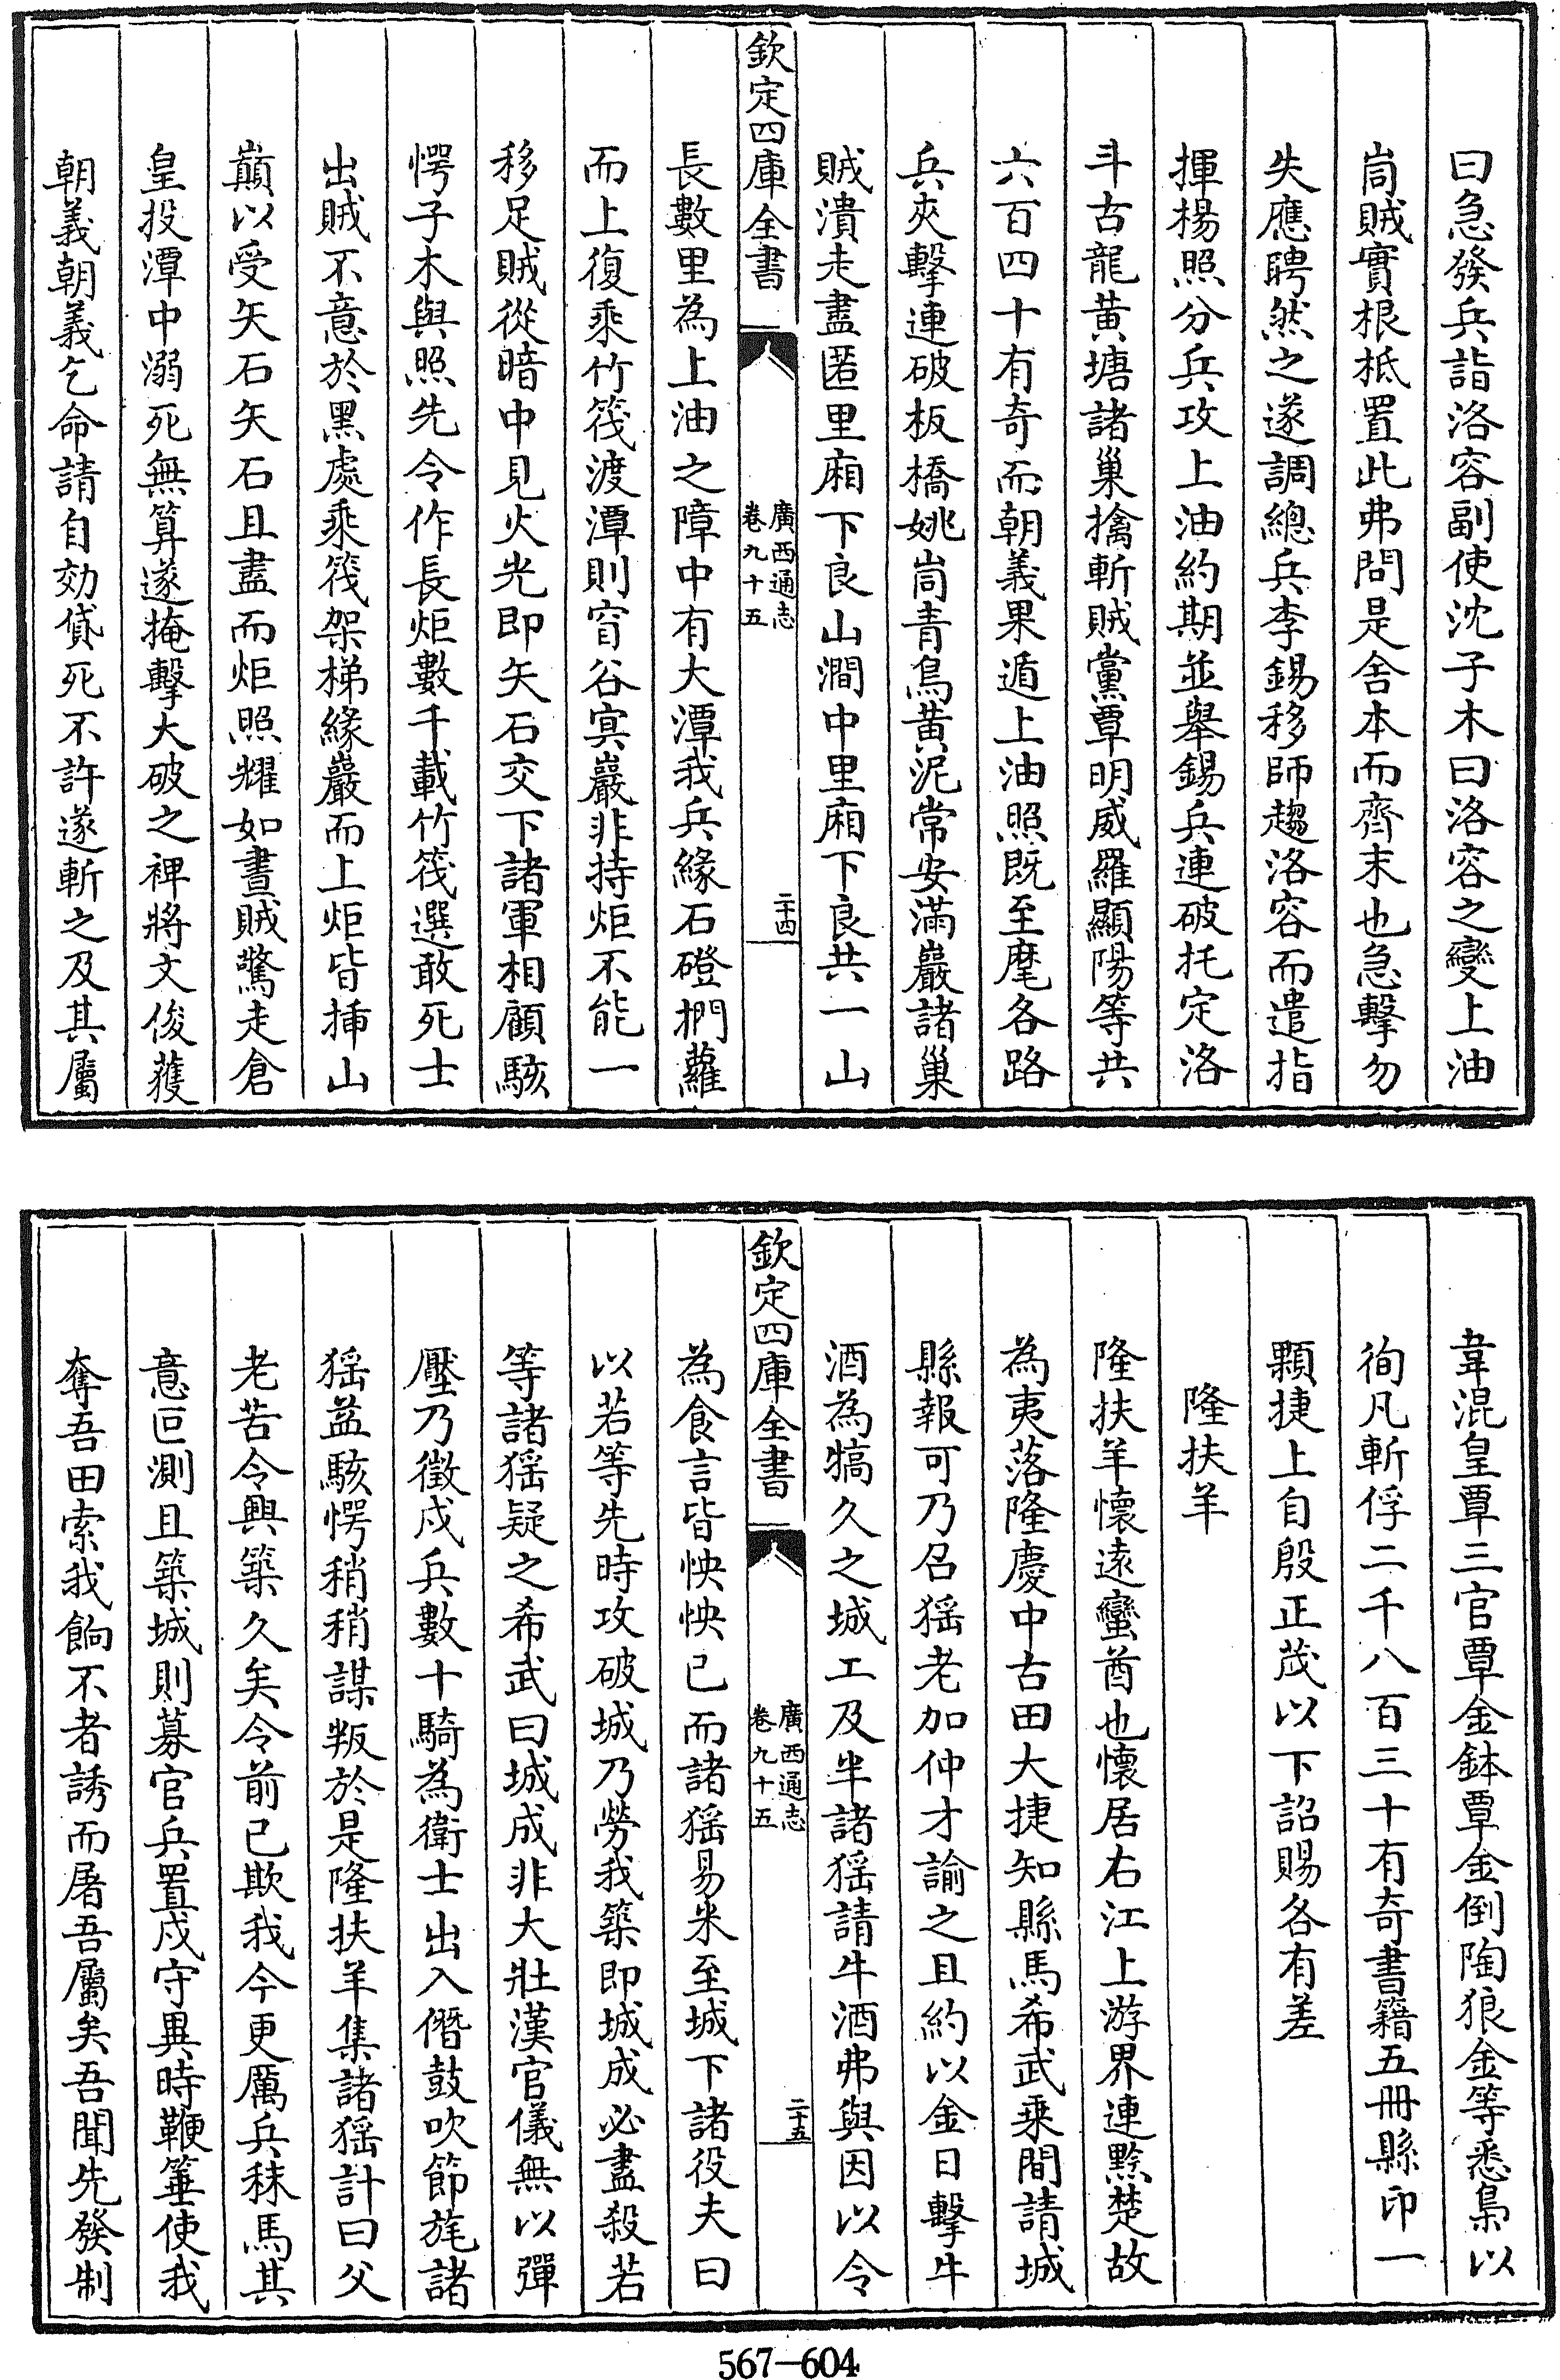 曰急發兵詣洛容副使沈子木曰洛容之變上油
峝賊實根柢置此弗問是舍本而齊末也急擊勿
失應聘然之遂調總兵李錫移師趨洛容而遣指
揮楊照分兵攻上油約期並舉錫兵連破托定洛
斗古龍黄塘諸巢擒斬賊黨覃明威羅顯陽等共
六百四十有奇而朝義果遁上油照既至麾各路
兵夾擊連破板橋姚峝青鳥黄泥常安滿巖諸巢
賊潰走盡匿里廂下良山澗中里廂下良共一山
欽定四庫全書
廣西通志
卷九十五
二十四
長數里為上油之障中有大潭我兵緣石磴捫蘿
而上復乘竹筏渡潭則窅谷㝠巖非持炬不能一
移足賊從暗中見火光即矢石交下諸軍相顧駭
愕子木與照先令作長炬數千載竹筏選敢死士
出賊不意於黑處乘筏架梯緣巖而上炬皆揷山
巔以受矢石矢石且盡而炬照耀如晝賊驚走倉
皇投潭中溺死無算遂掩擊大破之裨將文俊獲
朝義朝義乞命請自効貸死不許遂斬之及其屬
韋混皇覃三官覃金鉢覃金倒陶狼金等悉梟以
徇凡斬俘二千八百三十有奇書籍五冊縣印一
顆捷上自殷正茂以下詔賜各有差
隆扶羊
隆扶羊懷遠蠻酋也懷居右江上游界連黔楚故
為夷落隆慶中古田大捷知縣馬希武乗間請城
縣報可乃召猺老加仲才諭之且約以金日擊牛
酒為犒久之城工及半諸猺請牛酒弗與因以令
欽定四庫全書
廣西通志
卷九十五
二十五
為食言皆怏怏已而諸猺易米至城下諸役夫曰
以若等先時攻破城乃勞我築即城成必盡殺若
等諸猺疑之希武曰城成非大壯漢官儀無以彈
壓乃徵戍兵數十騎為衛士出入僭鼓吹節旄諸
猺益駭愕稍稍謀叛於是隆扶羊集諸猺計曰父
老苦令興築久矣令前已欺我今更厲兵秣馬其
意叵測且築城則募官兵置戍守異時鞭箠使我
奪吾田索我餉不者誘而屠吾屬矣吾聞先發制
567—604